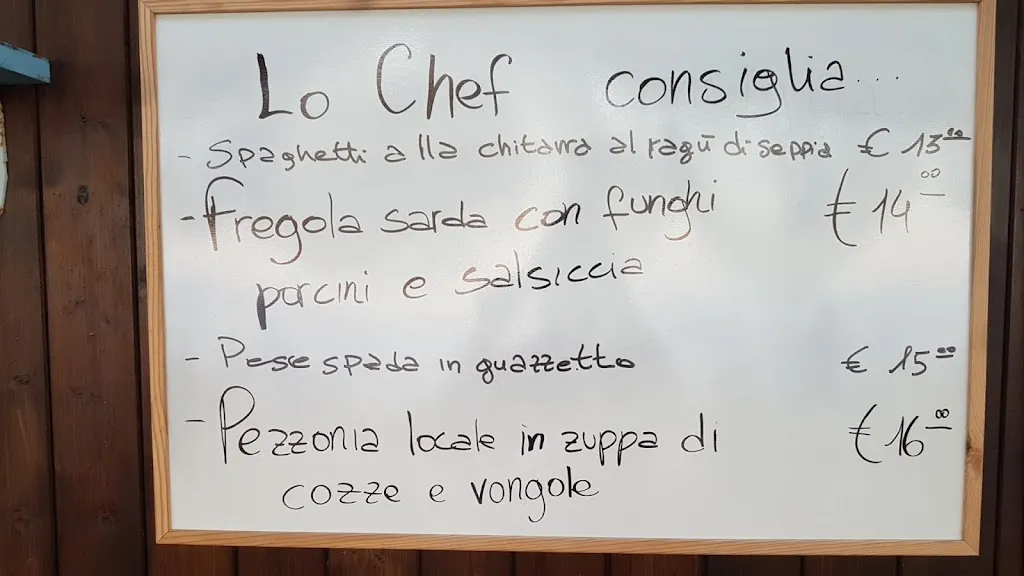 Lo Chef consiglia...
- Spaghetti alla chitarra al ragū di seppia € 13.00
- Fregola sarda con funghi € 14.00
porcini e salsiccia
- Pesce spada in guazzetto € 15.00
- Pezzonia locale in zuppa di € 16.00
cozze e vongole